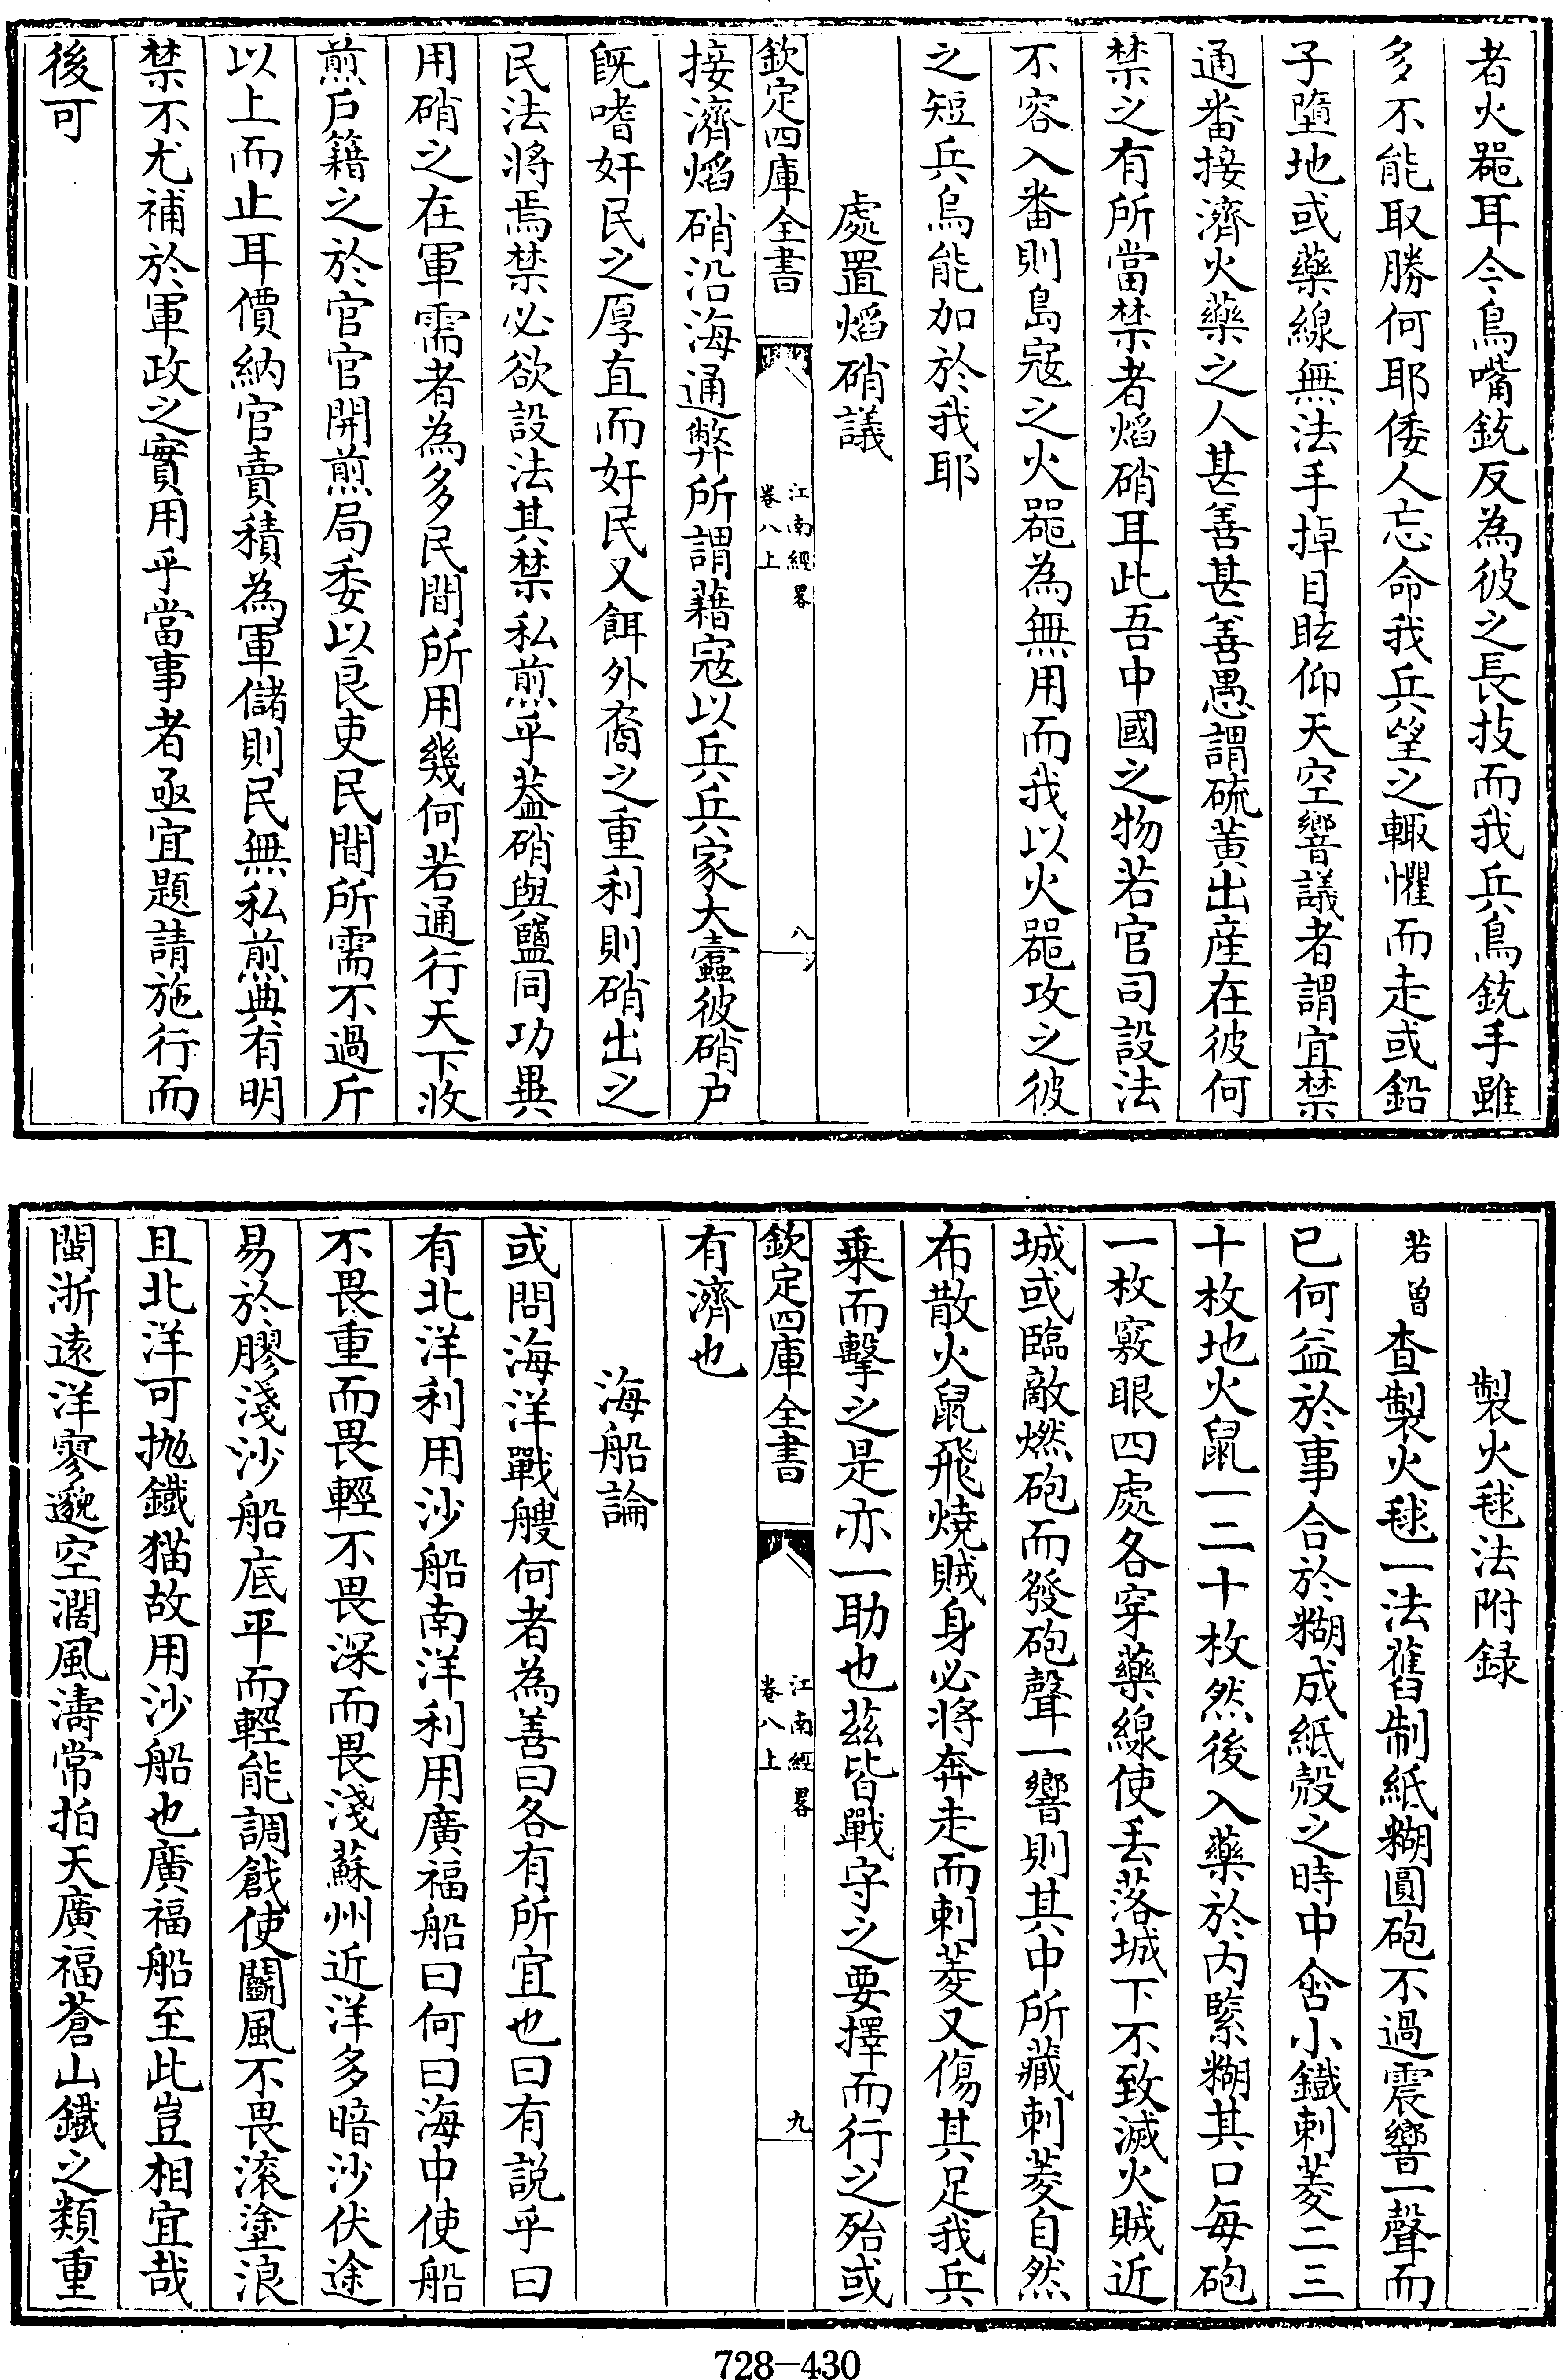 者火噐耳今鳥嘴銃反為彼之長技而我兵鳥銃手雖
多不能取勝何耶倭人忘命我兵望之輙懼而走或鉛
子墮地或藥線無法手掉目眩仰天空響議者謂宜禁
通番接濟火藥之人甚善甚善愚謂硫黃出産在彼何
禁之有所當禁者熖硝耳此吾中國之物若官司設法
不容入番則島寇之火噐為無用而我以火噐攻之彼
之短兵烏能加於我耶
處置熖硝議
欽定四庫全書
江南經畧
卷八上
八
接濟熖硝沿海通弊所謂藉寇以兵兵家大蠹彼硝戶
既嗜奸民之厚直而奸民又餌外裔之重利則硝出之
民法将焉禁必欲設法其禁私煎乎葢硝與鹽同功異
用硝之在軍需者為多民間所用幾何若通行天下收
煎戶籍之於官官開煎局委以良吏民間所需不過斤
以上而止耳價納官賣積為軍儲則民無私煎典有明
禁不尤補於軍政之實用乎當事者亟宜題請施行而
後可
製火毬法附錄
若曾查製火毬一法舊制紙糊圓砲不過震響一聲而
已何益於事合於糊成紙殻之時中㑹小鐡刺菱二三
十枚地火鼠一二十枚然後入藥於内緊糊其口每砲
一枚竅眼四處各穿藥線使丢落城下不致滅火賊近
城或臨敵燃砲而發砲聲一響則其中所藏刺菱自然
布散火鼠飛燒賊身必將奔走而刺菱又傷其足我兵
乗而擊之是亦一助也茲皆戰守之要擇而行之殆或
欽定四庫全書
江南經畧
卷八上
九
有濟也
海船論
或問海洋戰艘何者為善曰各有所宜也曰有説乎曰
有北洋利用沙船南洋利用廣福船曰何曰海中使船
不畏重而畏輕不畏深而畏淺蘇州近洋多暗沙伏途
易於膠淺沙船底平而輕能調戧使鬬風不畏滚塗浪
且北洋可抛鐡猫故用沙船也廣福船至此豈相宜哉
閩浙遠洋寥邈空濶風濤常拍天廣福蒼山鐡之類重
728—430